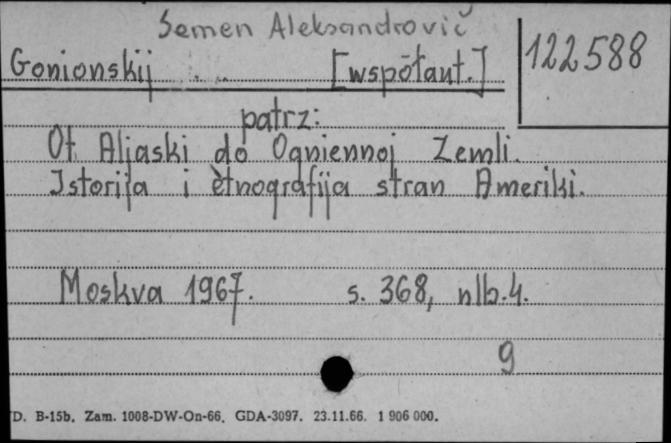 Semen Aleksandrovič
Gonionskij . .. [współaut.]
122588
patrz:
Ot Aljaski do Ogniennoj Zemli.
Istorija i ètnografija stran Ameriki.
Moskva 1967. s. 368, nlb. 4.
9
D. B-15b. Zam. 1008-DW-On-66. GDA-3097. 23.11.66. 1 906 000.